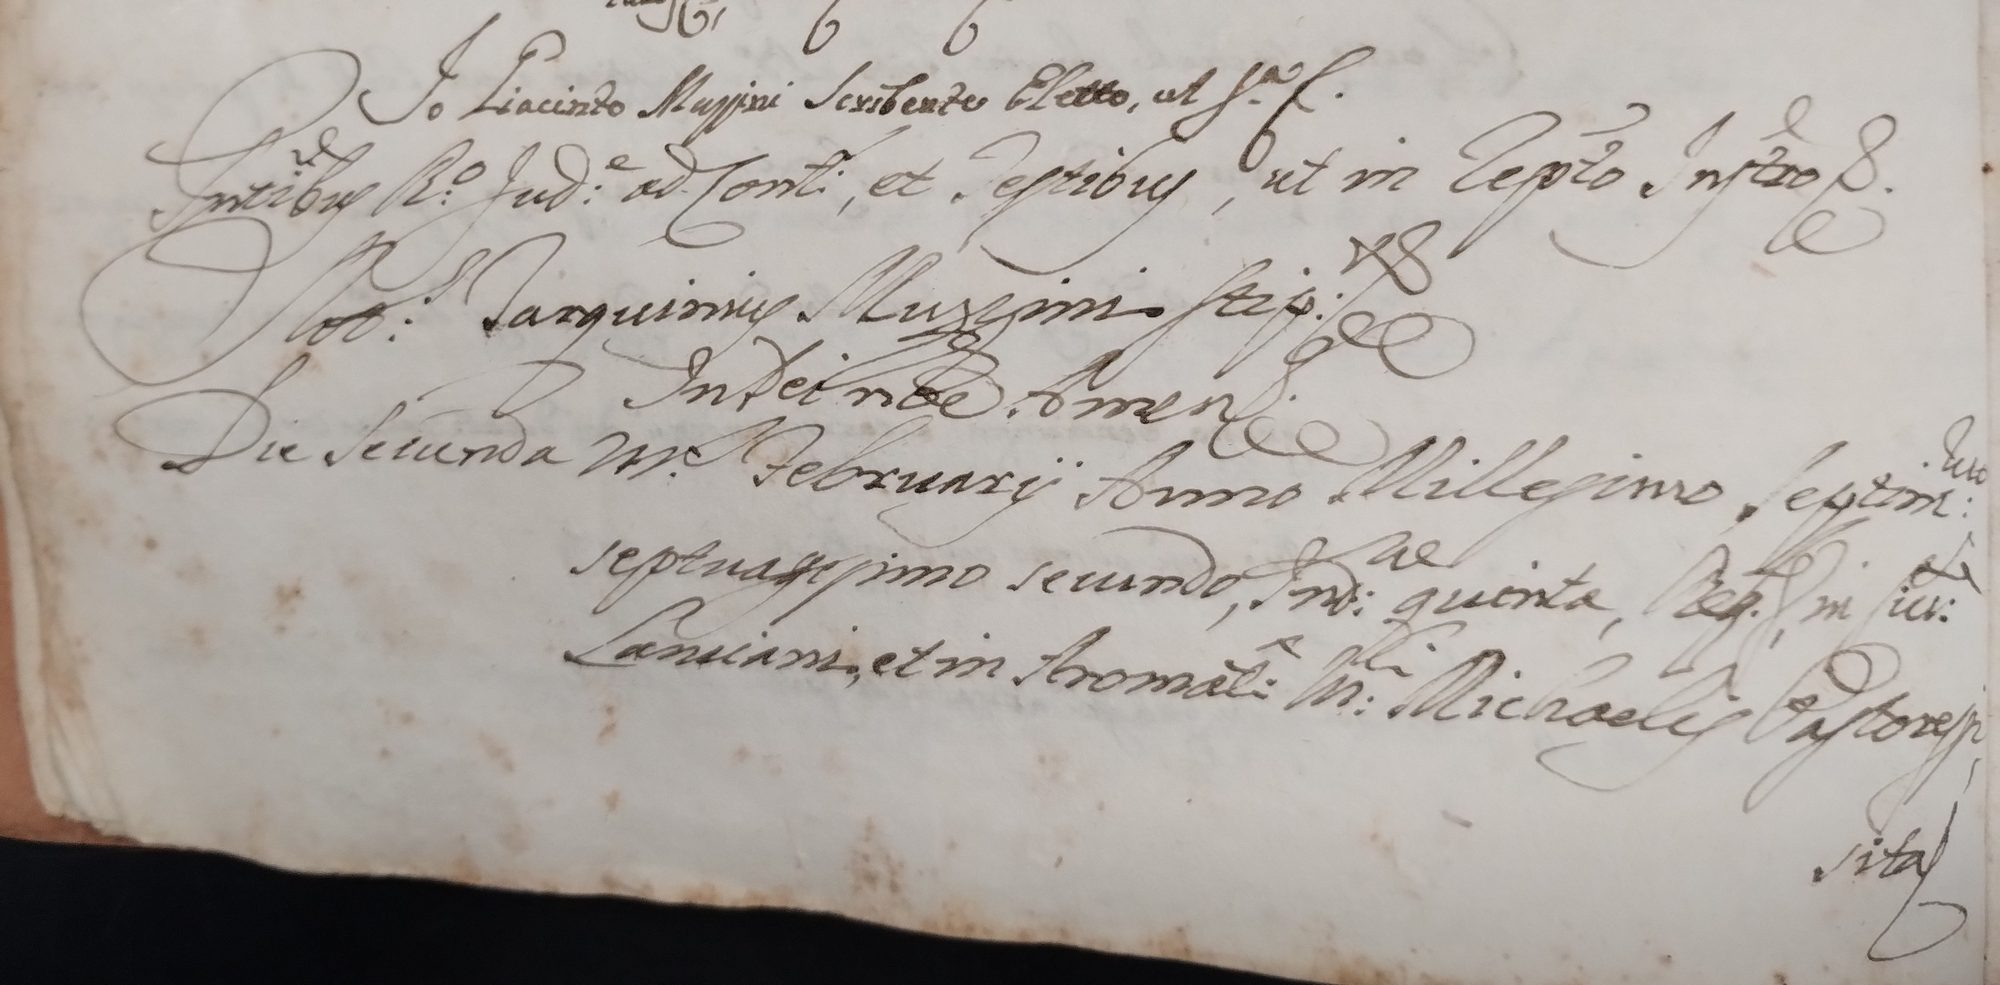 Io Giacinto Muzzini Scribente Eletto, ut S.a &.
Intibus R.o Jud:e ad Cont:, et Testibus, ut in Rep.to Instro &.
Not:s Tarquinius Muzzini Stip:
In Dei nõe Amen &.
Die Secunda m. Februarij Anno Millesimo Septin:mo
septuagesimo secundo, Ind:ne quinta, Reg:, in Civ:te
Lanciani, et in Aromat:a M:ci Michaelis Pastoressi,
sita